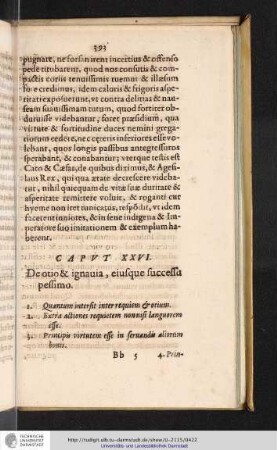 393
pugnare, ne forsan irent incertius & offenso
pede titubarent, quod nos consutis & com-
pactis coriis tenuissimis tuemur & illæsum
fore credimus, idem caloris & frigoris aspe-
ritati exposuerunt, vt contra delitias & nau-
seam suauissimam tutum, quod fortiter ob-
duruisse videbantur, foret præsidium, qua
virtute & fortitudine duces nemini grega-
riorum cedere, ne cęteris inferiores esse vo-
lebant, quos longis passibus antegressuros
sperabant, & conabantur; vterque testis est
Cato & Cæsar, de quibus diximus, & Agesi-
laus Rex, qui qua ætate decrescere videba-
tur, nihil quicquam de vitæ suæ duritate &
asperitate remittere voluit, & roganti cur
hyeme non iret tunicatus, respōdit, vt idem
facerent inniores, & in sene indigena & Im-
peratore suo imitationem & exemplum ha-
berent.
CAPVT XXVI.
De otio & ignauia, eiusque successu
pessimo.
1. Quantum intersit inter requiem & otium.
2. Extra actiones requietem nonnisi languorem
esse.
3. Principis virtutem esse in seruandis
Bb 5 4. Prin-
http://tudigit.ulb.tu-darmstadt.de/show/II-2115/0422
Universitäts- und Landesbibliothek Darmstadt